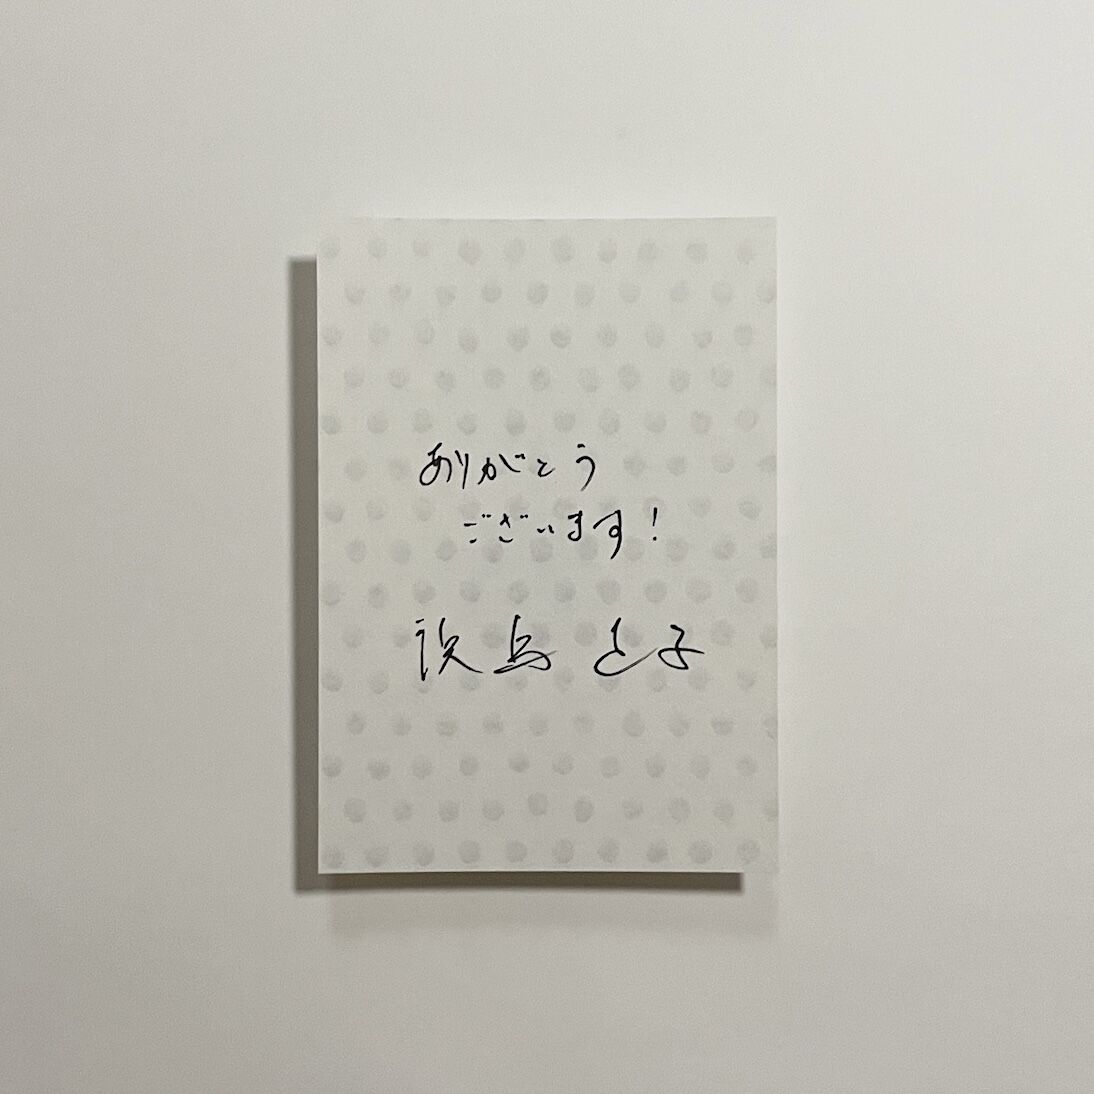 ありがとう
ございます!
島 子